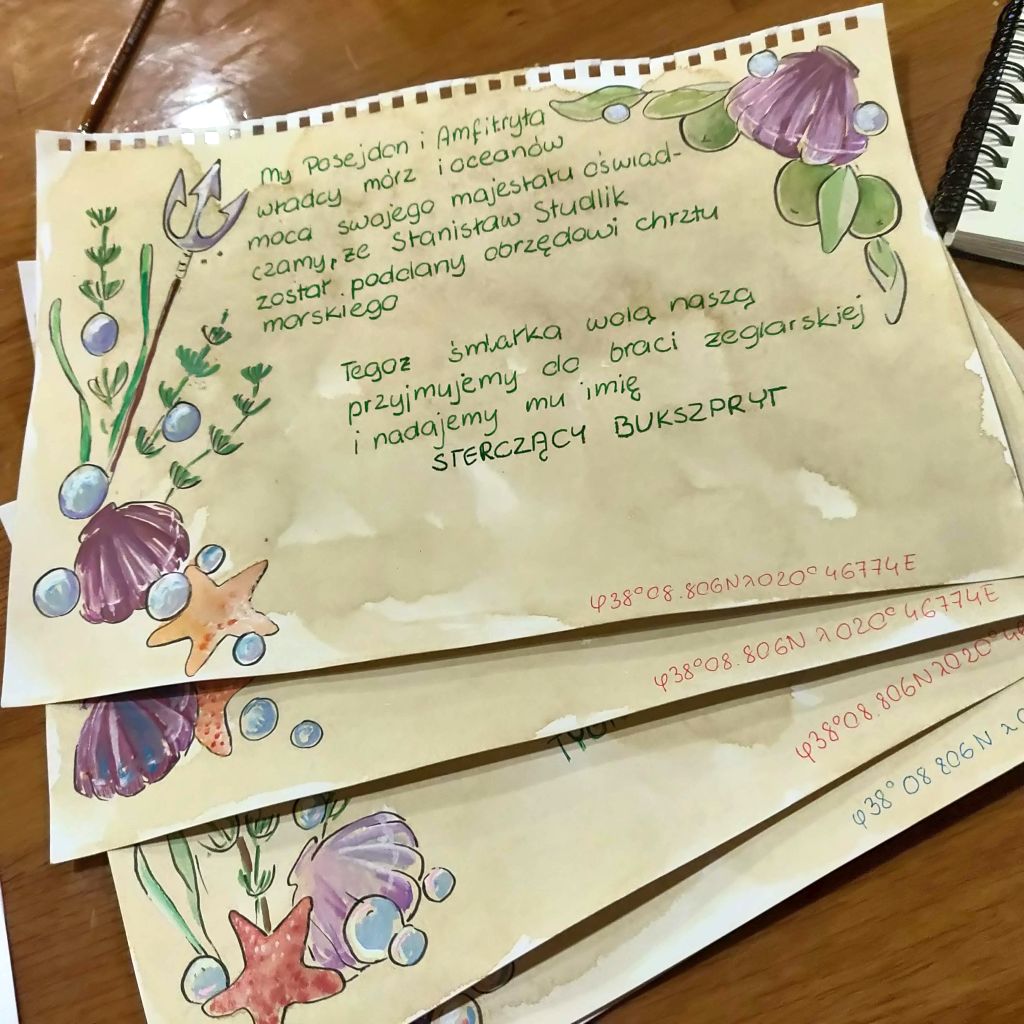 My Posejdon i Amfitryta
władcy mórz i oceanów
moca swojego majestatu oświad-
czamy, że Stanisław Studlik
został poddany obrzędowi chrztu
morskiego
Tegoż śmiałka wolą naszą
przyjmujemy do braci żeglarskiej
i nadajemy mu imię
STERCZĄCY BUKSZPRYT
φ38°08.806N λ020°46774E
φ38°08.806N λ020°46774E
φ38°08.806N λ020°
φ38°08 806N λ0